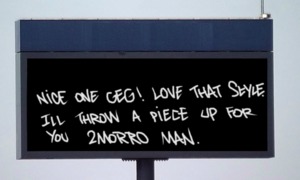 NICE ONE CEG! LOVE THAT SEYLE.
ILL THROW A PIECE UP FOR
YOU 2MORRO MAN.